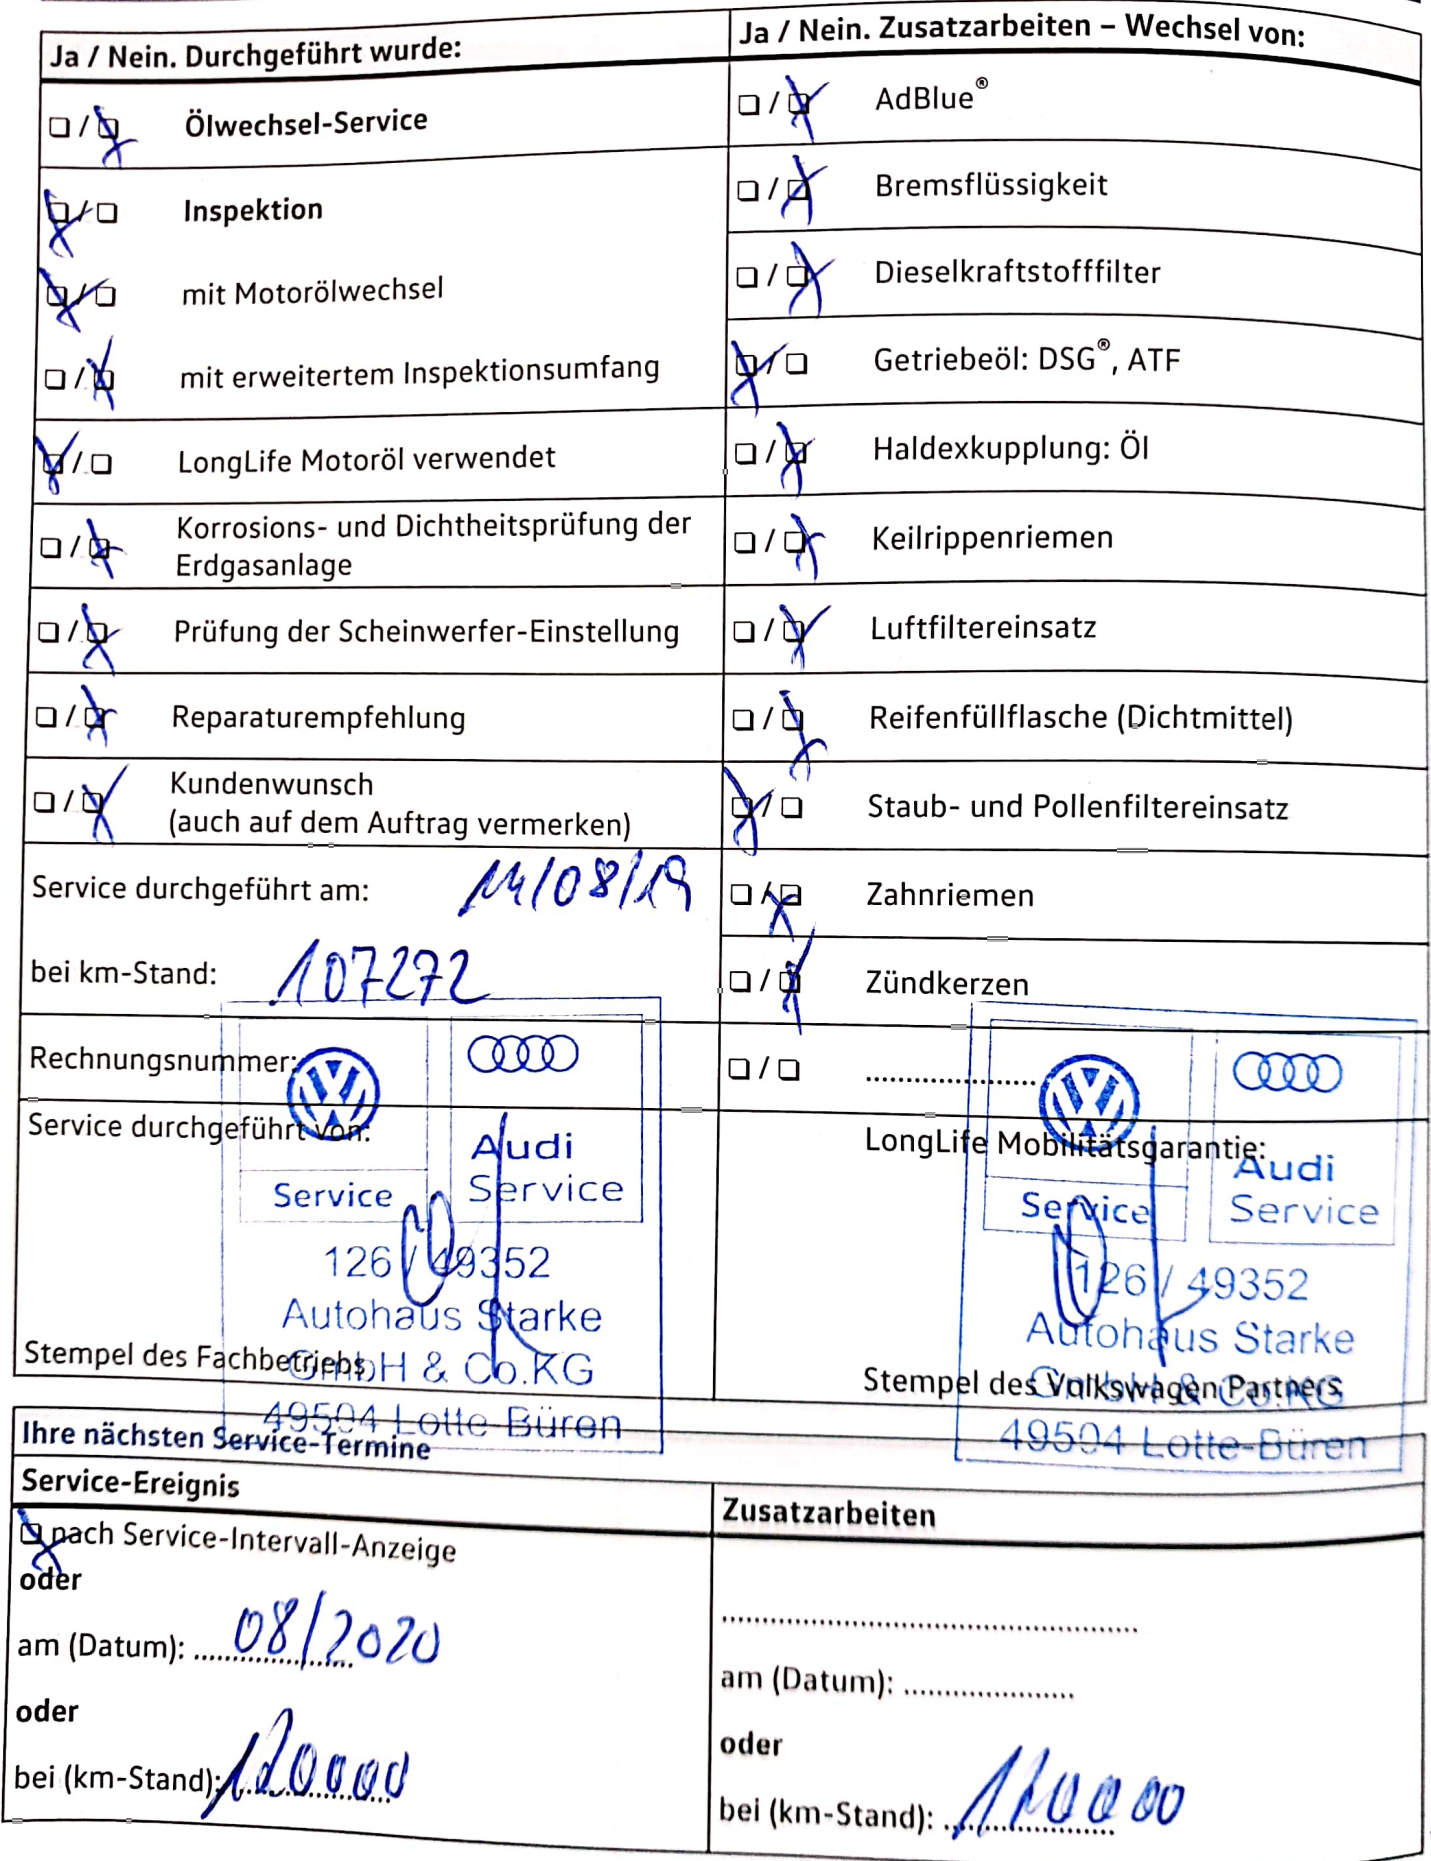 Ja / Nein. Durchgeführt wurde:
❏ / ❏ Ölwechsel-Service
❏ / ❏ Inspektion
❏ / ❏ mit Motorölwechsel
❏ / ❏ mit erweitertem Inspektionsumfang
❏ / ❏ LongLife Motoröl verwendet
❏ / ❏ Korrosions- und Dichtheitsprüfung der
Erdgasanlage
❏ / ❏ Prüfung der Scheinwerfer-Einstellung
❏ / ❏ Reparaturempfehlung
❏ / ❏ Kundenwunsch
(auch auf dem Auftrag vermerken)
Service durchgeführt am: 14/08/19
bei km-Stand: 107272
Rechnungsnummer:
Service durchgeführt von:
Audi
Service Service
126 / 49352
Autohaus Starke
GmbH & Co.KG
49504 Lotte-Büren
Stempel des Fachbetriebs
Ja / Nein. Zusatzarbeiten – Wechsel von:
❏ / ❏ AdBlue®
❏ / ❏ Bremsflüssigkeit
❏ / ❏ Dieselkraftstofffilter
❏ / ❏ Getriebeöl: DSG®, ATF
❏ / ❏ Haldexkupplung: Öl
❏ / ❏ Keilrippenriemen
❏ / ❏ Luftfiltereinsatz
❏ / ❏ Reifenfüllflasche (Dichtmittel)
❏ / ❏ Staub- und Pollenfiltereinsatz
❏ / ❏ Zahnriemen
❏ / ❏ Zündkerzen
❏ / ❏ ......................
LongLife Mobilitätsgarantie:
Audi
Service Service
126 / 49352
Autohaus Starke
GmbH & Co.KG
49504 Lotte-Büren
Stempel des Volkswagen Partners
Ihre nächsten Service-Termine
Service-Ereignis
❏ nach Service-Intervall-Anzeige
oder
am (Datum): 08/2020
oder
bei (km-Stand): 120000
Zusatzarbeiten
am (Datum): ......................
oder
bei (km-Stand): 120000